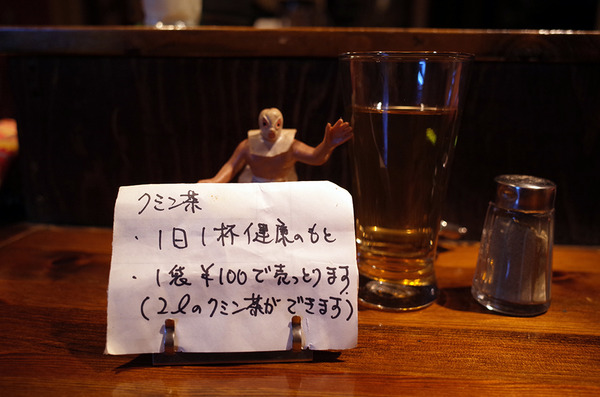 クミン茶
・1日1杯健康のもと
・1袋¥100で売っとります
(2ℓのクミン茶ができます)